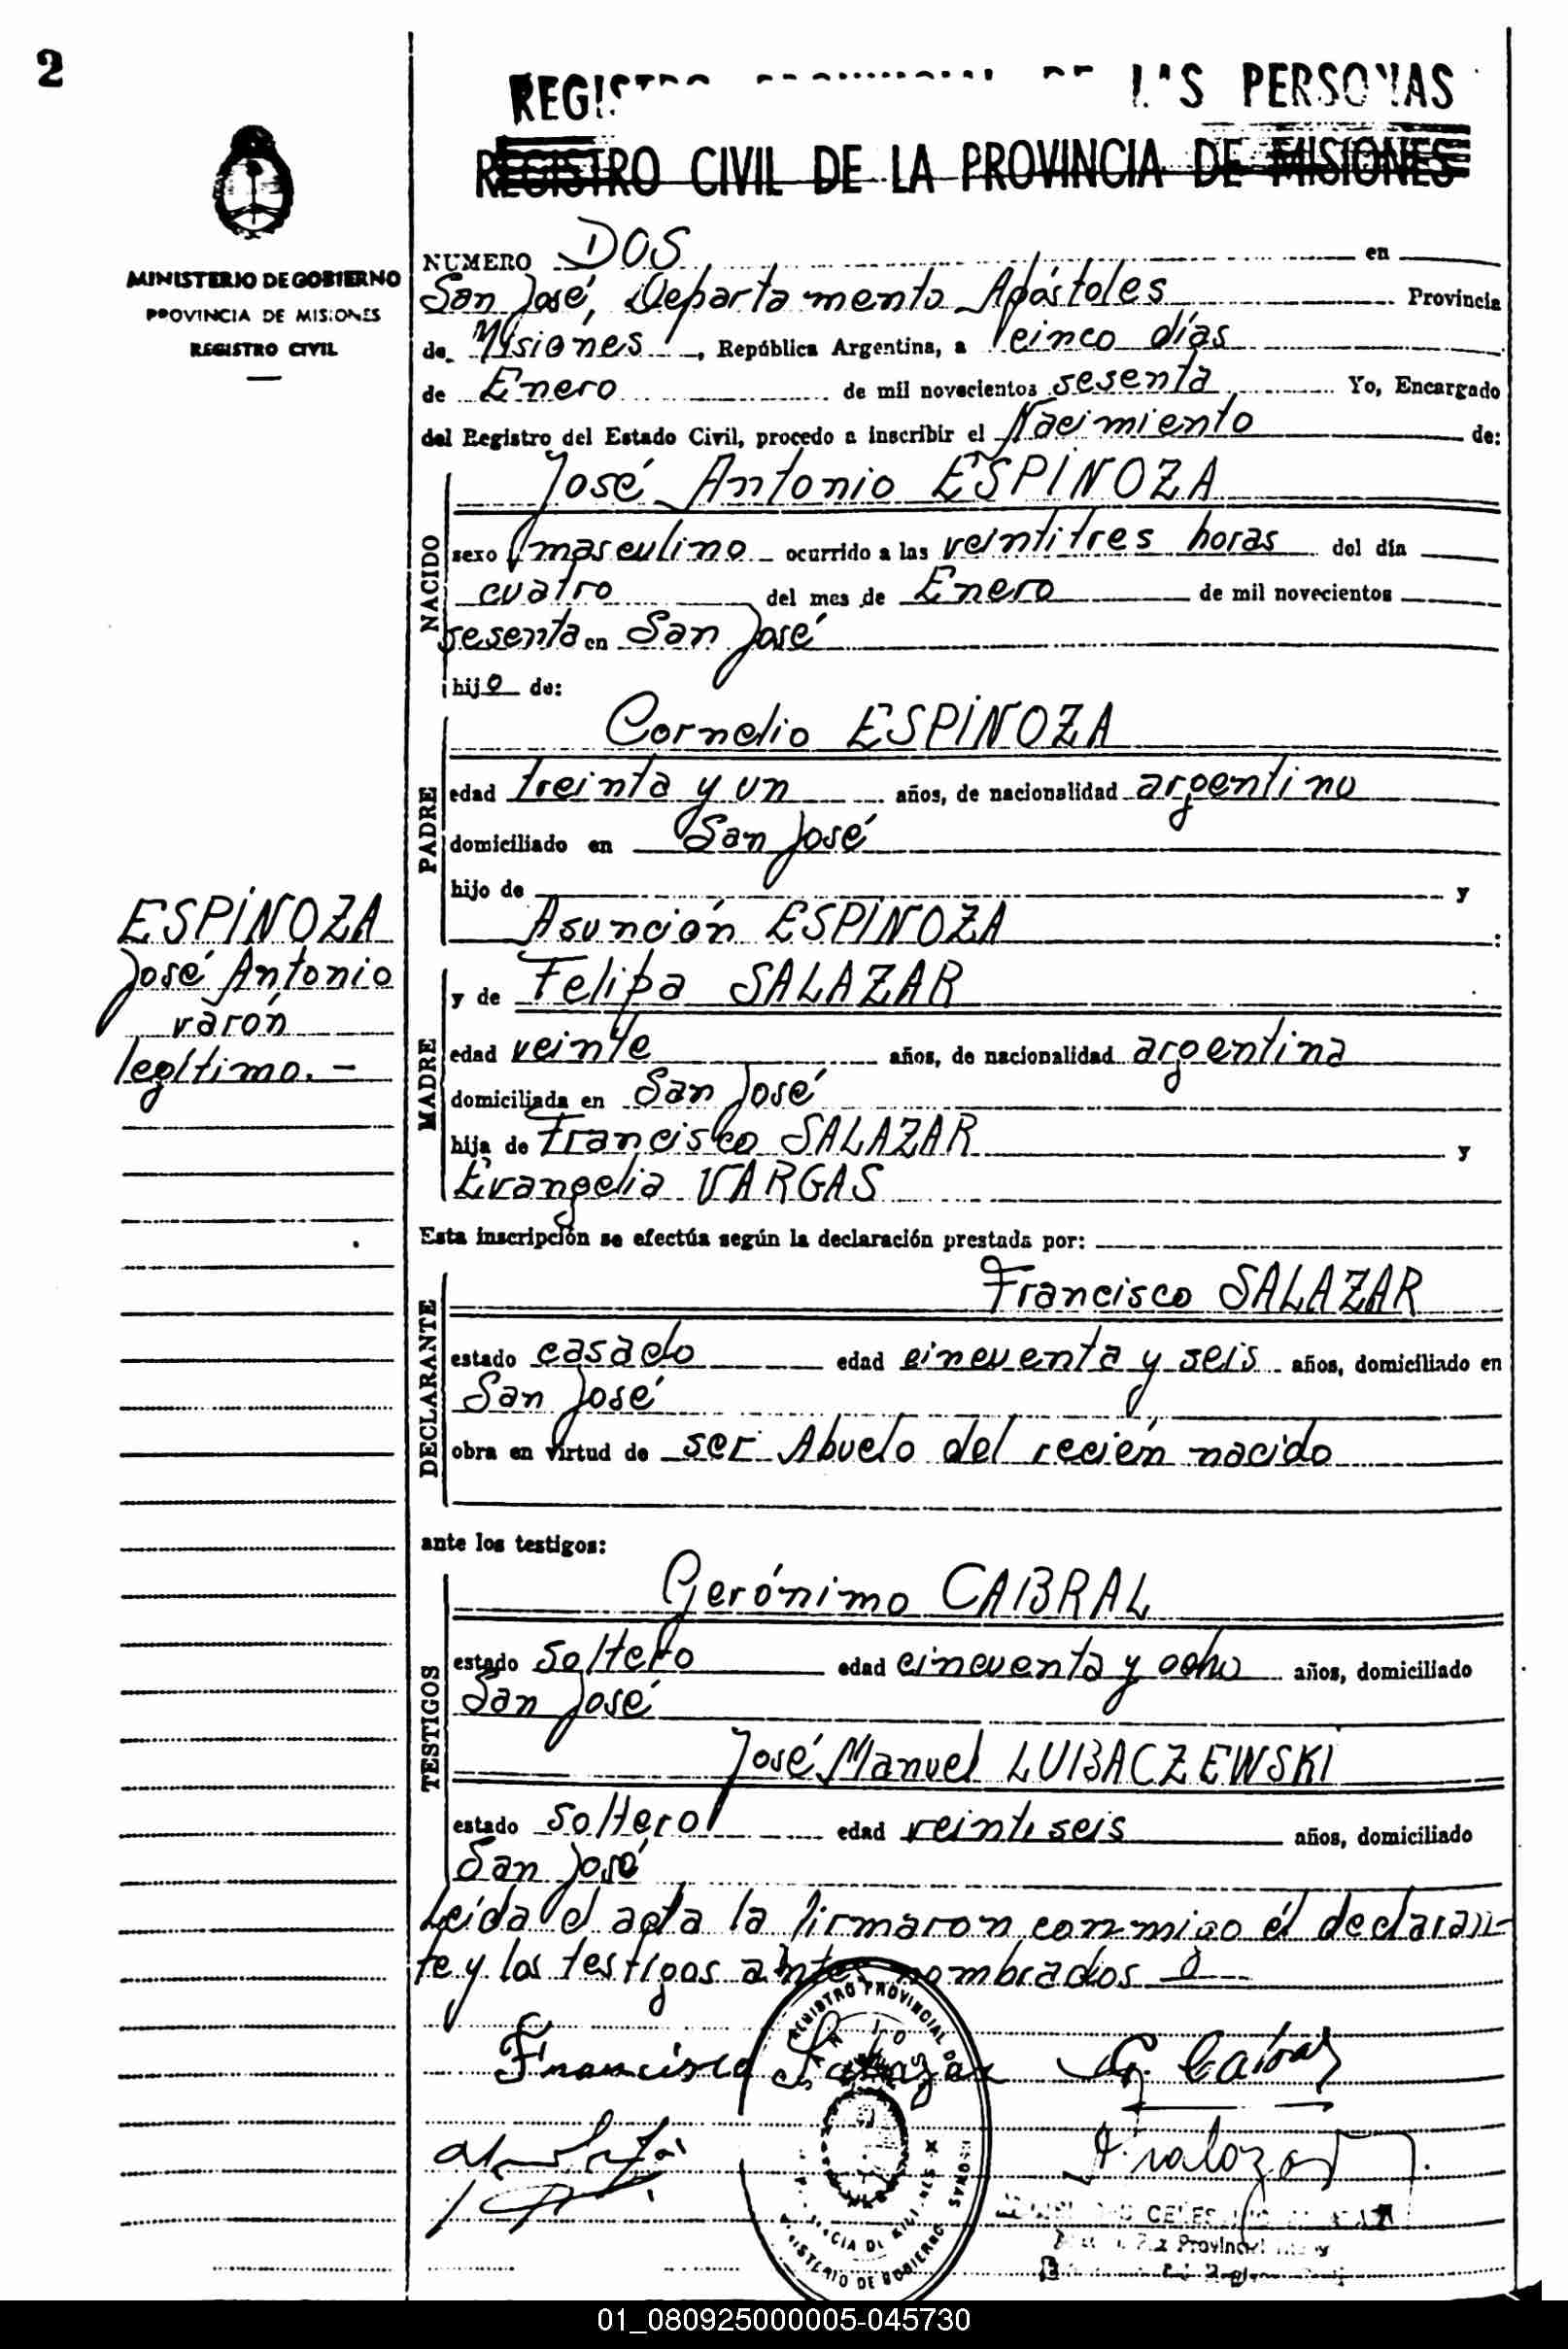 2
REGISTRO DE LAS PERSONAS
REGISTRO CIVIL DE LA PROVINCIA DE MISIONES
MINISTERIO DE GOBIERNO
PROVINCIA DE MISIONES
REGISTRO CIVIL
NUMERO DOS en
San José, Departamento Apóstoles Provincia
de Misiones, República Argentina, a cinco días
de Enero de mil novecientos sesenta Yo, Encargado
del Registro del Estado Civil, procedo a inscribir el Nacimiento de:
NACIDO
José Antonio ESPINOZA
sexo masculino ocurrido a las veintitres horas del día
cuatro del mes de Enero de mil novecientos
sesenta en San José
hijo de:
PADRE
Cornelio ESPINOZA
edad treinta y un años, de nacionalidad argentino
domiciliado en San José
hijo de y
Asunción ESPINOZA :
ESPINOZA
José Antonio
varón
legítimo.-
MADRE
y de Felipa SALAZAR
edad veinte años, de nacionalidad argentina
domiciliada en San José
hija de Francisco SALAZAR y
Evangelia VARGAS
Esta inscripción se efectúa según la declaración prestada por:
DECLARANTE
Francisco SALAZAR
estado casado edad cincuenta y seis años, domiciliado en
San José
obra en virtud de ser Abuelo del recién nacido
ante los testigos:
TESTIGOS
Gerónimo CABRAL
estado soltero edad cincuenta y ocho años, domiciliado
San José
José Manuel LUBACZEWSKI
estado soltero edad veintiseis años, domiciliado
San José
Leída el acta la firmaron conmigo él declaran-
te y los testigos antes nombrados
Francisco Salazar G. Cabral
REGISTRO PROVINCIAL DE
PERSONAS
MINISTERIO DE GOBIERNO
Provincial
01_080925000005-045730